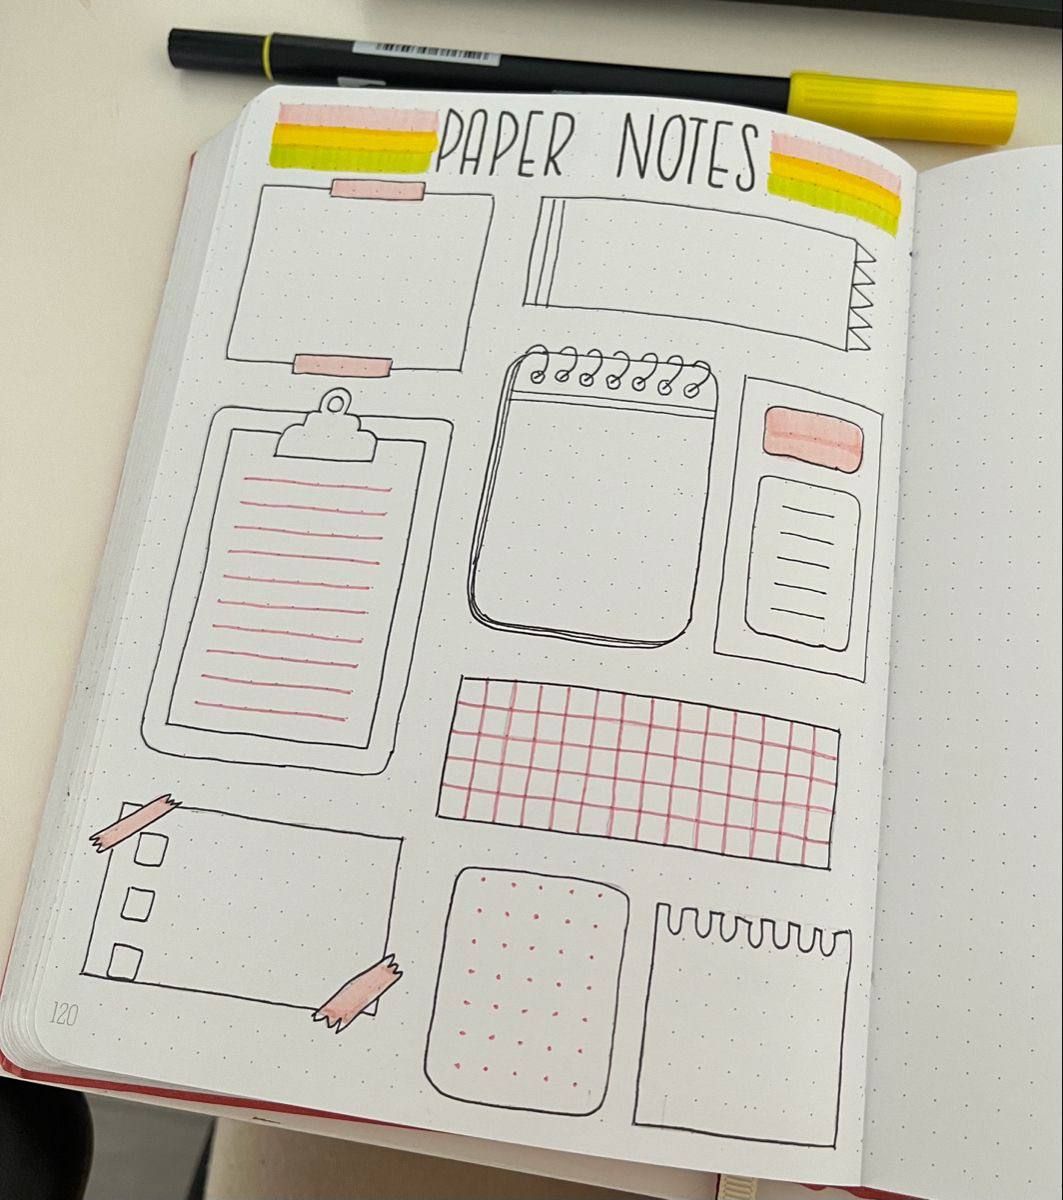 PAPER NOTES
120